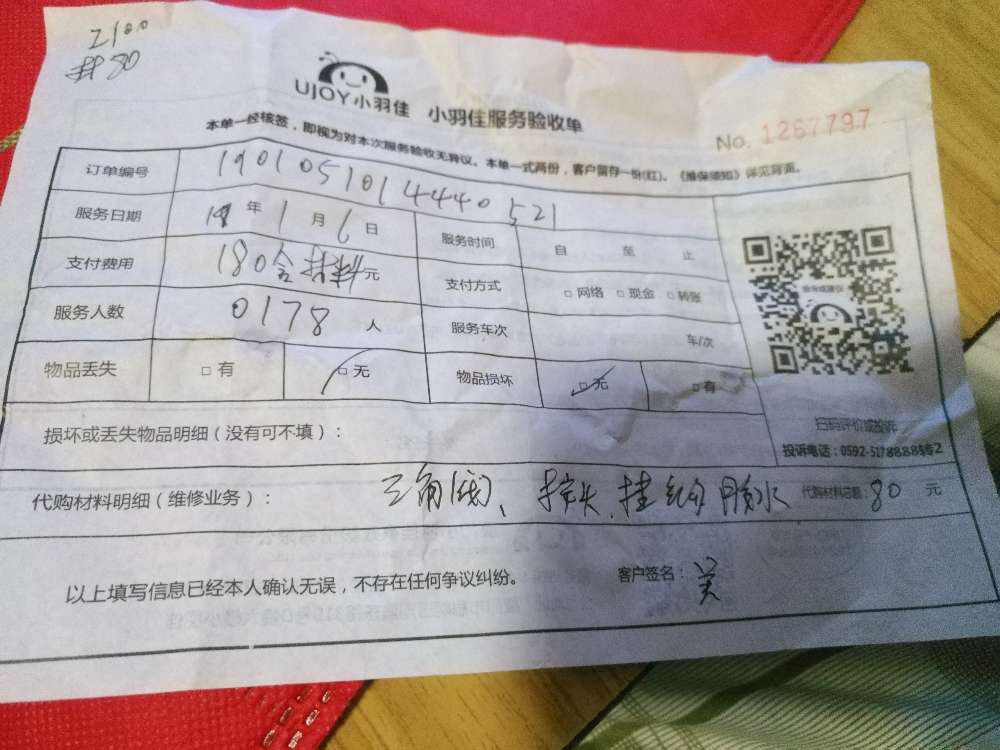 2100
80
UJOY小羽佳 小羽佳服务验收单
No. 1267797
本单一经核签，即视为对本次服务验收无异议。本单一式两份，客户留存一份(红)。《维保须知》详见背面。
订单编号 190105101444 0521
服务日期 年 1 月 6 日 服务时间 自 至 止
支付费用 180含材料元 支付方式 □网络 □现金 □转账
服务人数 0178 人 服务车次 车/次
物品丢失 □有 □无 物品损坏 □无 □有
损坏或丢失物品明细（没有可不填）：
扫码评价或投诉
投诉电话：0592-5178888转2
代购材料明细（维修业务）： 三角阀、 胶水 代购材料总额：80 元
以上填写信息已经本人确认无误，不存在任何争议纠纷。 客户签名：吴